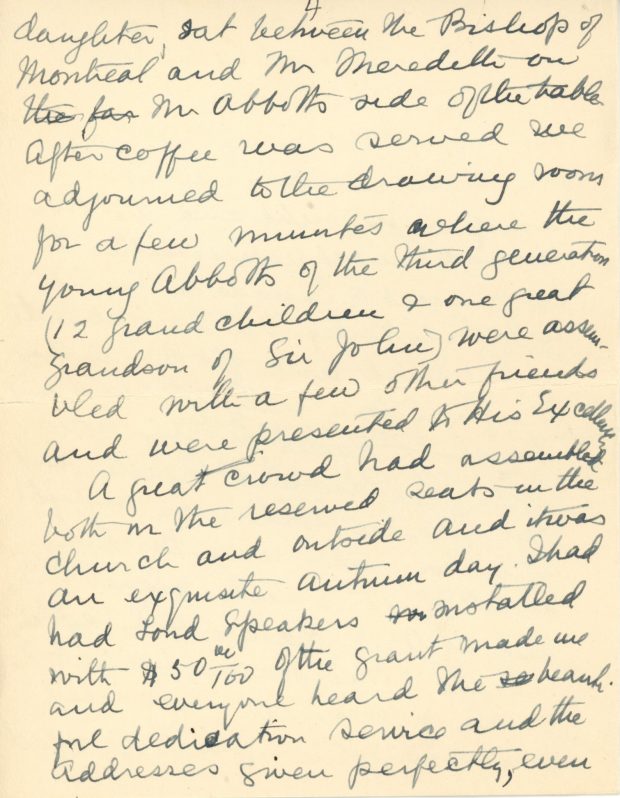 4
daughter, sat between the Bishop of
Montreal and Mr Meredith on
the far Mr Abbotts side of the table
After coffee was served we
adjourned to the drawing room
for a few minutes where the
young Abbotts of the third generation
(12 grand children & one great
grandson of Sir John) were assem-
bled with a few other friends
and were presented to His Excellency
A great crowd had assembled
both in the reserved seats in the
church and outside and it was
an exquisite autumn day. I had
had Loud Speakers installed
with $50 00/100 of the grant made me
and everyone heard the beauti-
ful dedication service and the
addresses given perfectly, even